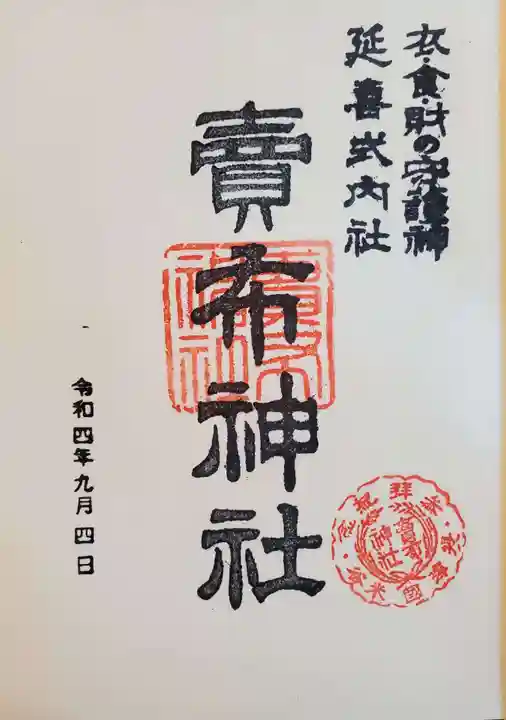 衣・食・財の守護神
延喜式内社
賣布神社
令和四年九月四日
賣布
神社